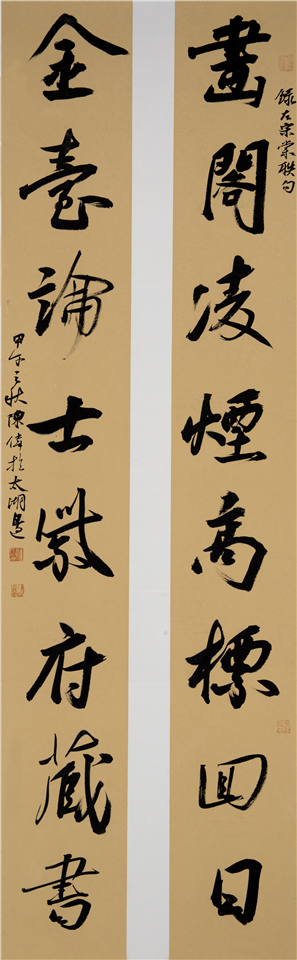 畫閣凌煙高標回日
錄左宗棠聯句
金臺論士紫府藏書
甲午之秋陳偉於太湖邊